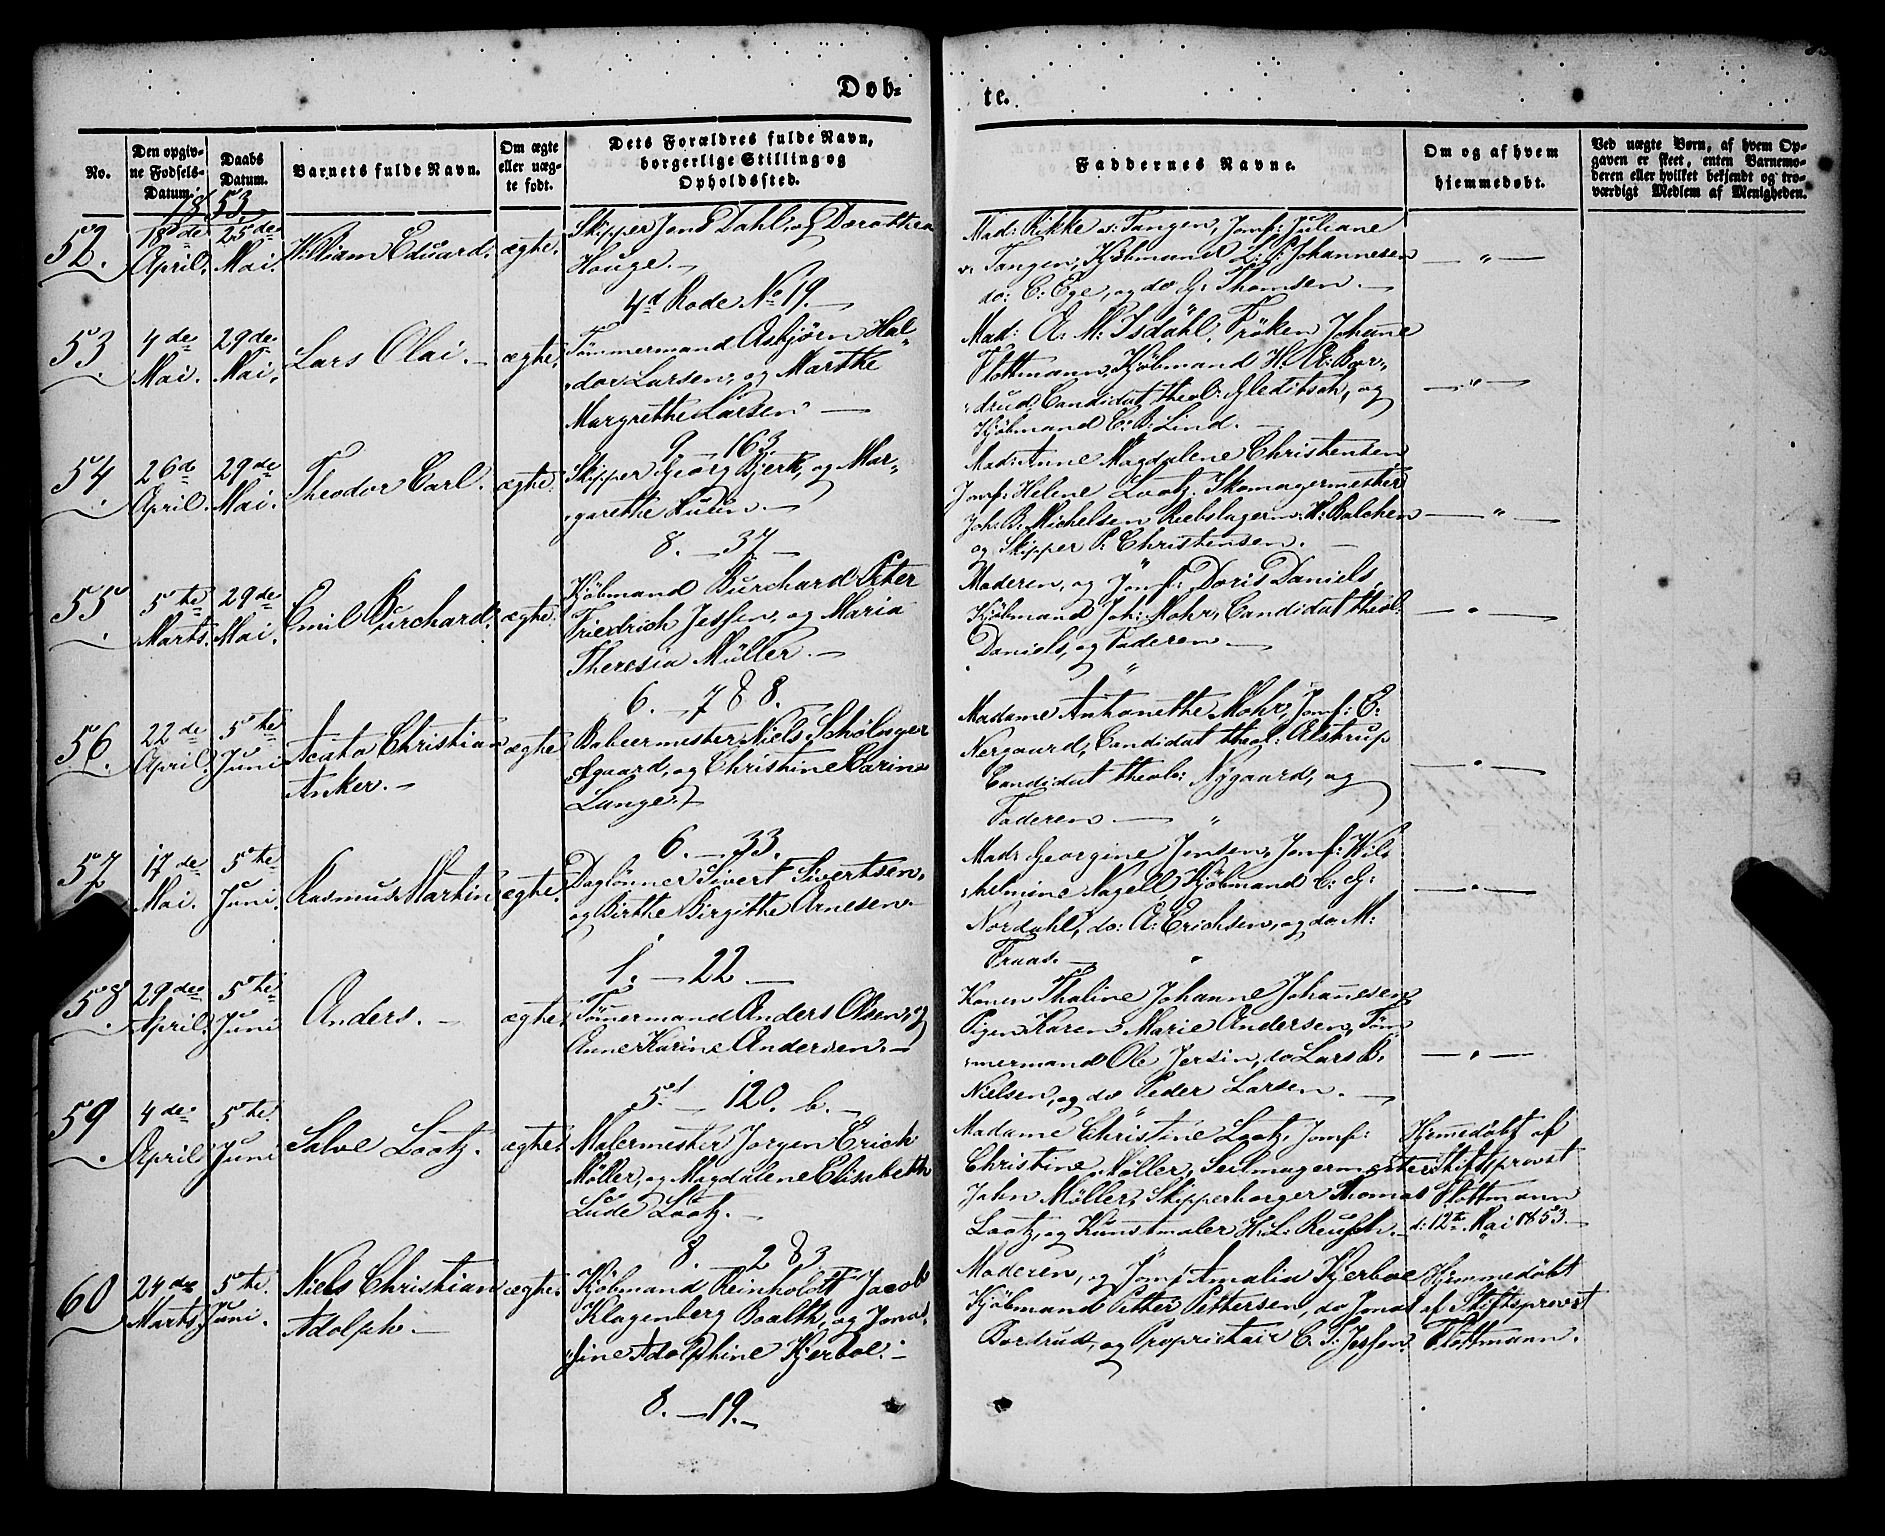 Døb-
te.
No.
Den opgivne Fødsels-Datum.
Daabs Datum.
Barnets fulde Navn.
Om ægte eller uægte født.
Dets Forældres fulde Navn, borgerlige Stilling og Opholdssted.
Faddernes Navne.
Om og af hvem hjemmedøbt.
Ved uægte Børn, af hvem Opgaven er skeet, enten Barnemoderen eller hvilket bekjendt og troværdigt Medlem af Menigheden.
1853.
52.
18de April.
25de Mai.
William Eduard.
ægte.
Skipper Jens Dahl, og Dorothea
Houge.
4d Rode No 19.
Mad: Rikke v: Tangen, Jomf: Juliane
v: Tangen, Kjøbmand L: P: Johannesen
do: C: Ege, og do G: Thomsen.
— " —
53.
4de Mai.
29de Mai.
Lars Olai.
ægte.
Tømmermand Asbjørn Hal-
dor Larsen, og Marthe
Margrethe Larsen
9. — 163.
Mad: A: M: Isdahl, Frøken Johanne
Flottmann, Kjøbmand H: A: Bor-
drud, Candidat theol: Gleditsch, og
Kjøbmand C: B: Lind.
— " —
54.
26de April.
29de Mai.
Theodor Carl.
ægte.
Skipper Georg Bjerk, og Mar-
garethe
8. — 37.
Mad: Anne Magdalene Christensen
Jomf: Helene Lootz, Skomagermester
Joh: B: Michelsen Reebslagerm: H: Balchen
og Skipper P: Christensen.
— " —
55.
5te Marts.
29de Mai.
Emil Burchard.
ægte.
Kjøbmand Burchard Peter
Friedrich Jessen, og Maria
Theresia Müller.
6. — 788.
Moderen, og Jomf: Doris Daniels,
Kjøbmand Joh: Mohr, Candidat theol:
Daniels, og Faderen
— " —
56.
22de April.
5te Juni
Acato Christian
Anker.
ægte
Bøkermester Niels Schølager
Øgaard, og Christine Carine
Lange.
6. — 33.
Madame Anthonethe Mohr, Jomf: E:
Nergaard, Candidat theol: Alstrup
Candidat theol: Nygaard, og
Faderen — "
— " —
57.
17de Mai.
5te Juni.
Rasmus Martin.
ægte.
Daglønner Sivert Sivertsen,
og Birthe Birgithe Arnesen.
1. — 22 —
Mad: Georgine Jensen, Jomf: Wil-
helmine Nagell Kjøbmand C: G:
Nordahl, do: A: Erichsen, og do: M:
Fraas. — "
— " —
58.
29de April.
5te Juni
Anders.
ægte.
Tømmermand Anders Olsen, og
Anne Karine Andersen.
5t — 120. b.
Konen Thaline Johanne Johannesen,
Pigen Karen Marie Andersen, Tøm-
mermand Ole Jersin, do Lars B:
Nielsen, og do Peder Larsen.
— " —
59
4de April
5te Juni
Salve Lootz.
ægte.
Malermester Jørgen Erich
Møller, og Magdalene Elisabeth
Lude Lootz.
8. — 283
Madame Christine Lootz, Jomf:
Christine Møller, Seilmagermester
John Møller, Skipperborger Thomas
Lootz, og Kunstmaler H: L: Reusch.
Hjemmedøbt af
Stiftsprovst
Flottmann
d: 12te Mai 1853.
60
24de Marts
5te Juni.
Niels Christian
Adolph.
ægte.
Kjøbmand Reinholdt Jacob
Klagenberg Boalth, og Jona-
sine Adolphine Kjerboe.
8. — 19.
Moderen, og Jomf Amalia Kjerboe
Kjøbmand Petter Pettersen, do Jonas
Bordrud, og Proprietair C. P: Jessen
Hjemmedøbt
af Stiftsprovst
Flottmann.